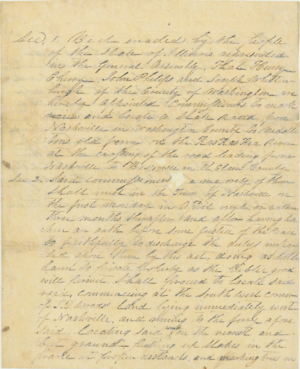 Sec. 1. Be it enacted by the People
of the State of Illinois represented
in the General Assembly, That Henry
John Philips and Joseph
of the County of Washington are
hereby appointed Commissioners to mark
and locate a State Road from
Nashville in Washington County to
old farm on the Kaskaskia River
at the crossing of the road leading from
Nashville to in St Clair County
Sec. 2. Said Commissioners or a majority of them
Shall meet in the Town of Nashville on
the first monday in April next or within
three months thereafter and after having
an oath before some justice of the Peace
so faithfully to discharge the duties
upon them by this act, doing as little
to private property as the Public good
will permit, Shall proceed to locate said
road, commencing at the South west corner
of land lying immediately west
of Nashville, and to the point afore
said. Locating said on the nearest and
best ground, Sticking up Stakes in the
at proper and marking trees in